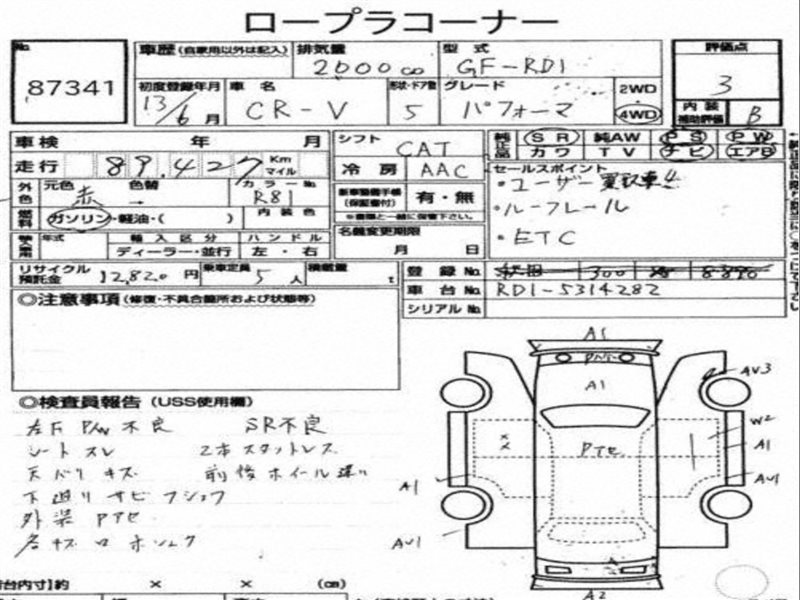 ロープラコーナー
No.
87341
車歴 (自家用以外は記入) 排気量 型式 評価点
2000cc GF-RD1 3
初度登録年月 車名 形状・ドア数 グレード 2WD 内装補助評価
13/6月 CR-V 5 パフォーマ 4WD B
車検 年 月 シフト CAT 純正品 SR 純AW PS PW
走行 89,427 Km マイル 冷房 AAC カワ TV ナビ エアB
外色 元色 赤 色替 → カラーNo. R81 新車整備手帳 (保証書付) 有・無 セールスポイント
・ユーザー買取車!!
燃料 ガソリン・軽油・( ) 内装色 ※書類と一緒に保管下さい。 ・ルーフレール
年式 輸入区分 ハンドル 名義変更期限 ・ETC
ディーラー・並行 左・右 月 日
リサイクル預託金 12,820円 乗車定員 5人 積載量 t 登録No. 300
車台No. RD1-5314282
シリアルNo.
◎注意事項 (修復・不具合箇所および状態等)
◎検査員報告 (USS使用欄)
左F P/W不良 SR不良
シートスレ 2本スタットレス
天バリキズ 前後ホイール違い
下廻りサビ
外装PTセ
A1
A1
AV3
W2
PTセ
A1
A1
AV1
AV1
A2
台内寸)約 × × (cm)